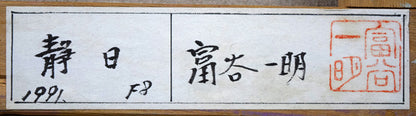 靜日
1991. F8
富谷一明
富谷
一明